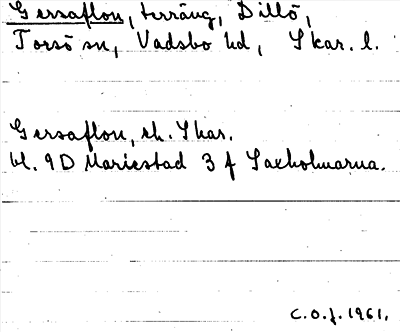 Gersaflon, terräng, Dillö,
Torsö sn, Vadsbo hd, Skar. l.
Gersaflon, rh. Skar.
bl. 9D Mariestad 3 f Saxholmarna.
C.O.f. 1961.